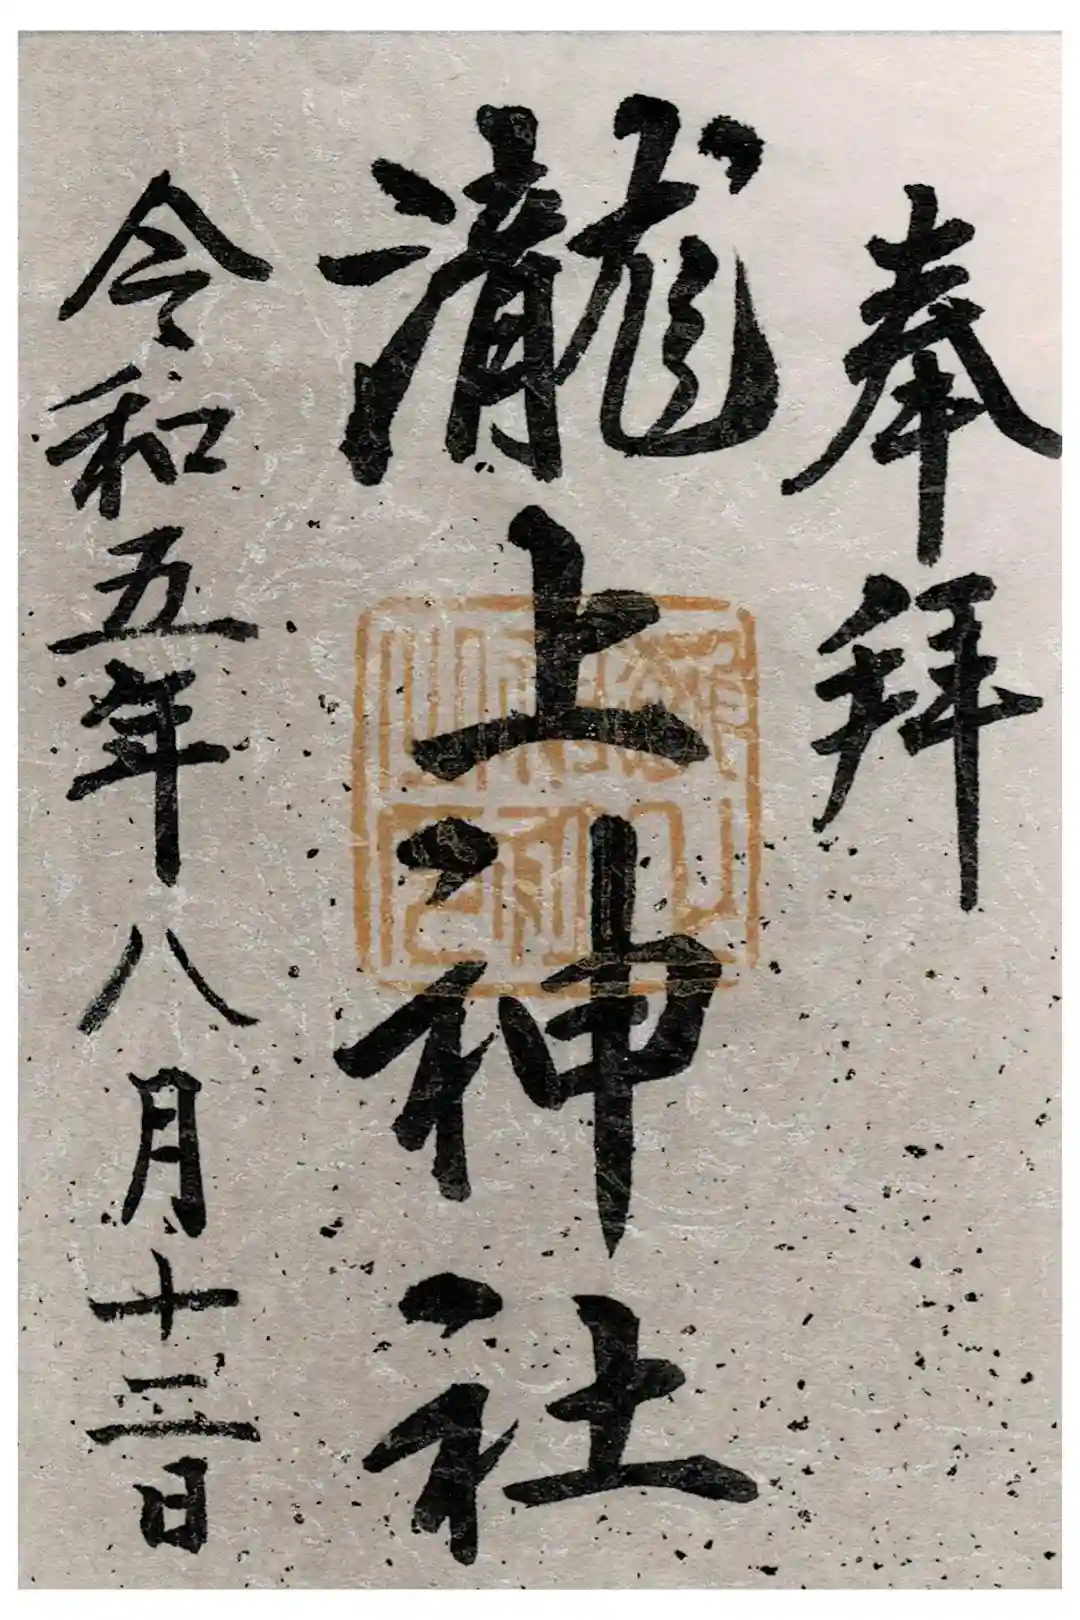 奉拜
瀧上神社
令和五年八月十三日